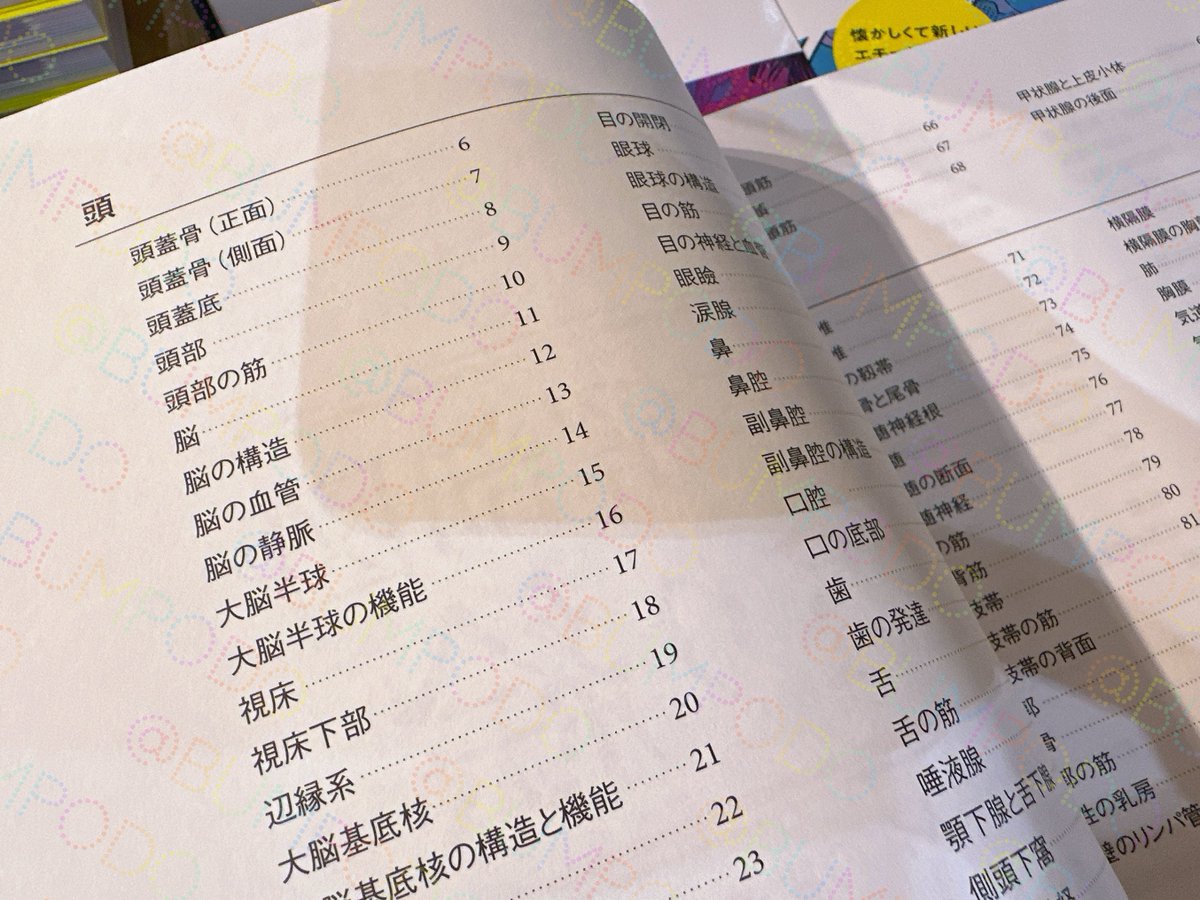 懐かしくて新しい
頭
頭蓋骨（正面） 6
頭蓋骨（側面） 7
頭蓋底 8
頭部 9
頭部の筋 10
脳 11
脳の構造 12
脳の血管 13
脳の静脈 14
大脳半球 15
大脳半球の機能 16
視床 17
視床下部 18
辺縁系 19
大脳基底核 20
脳基底核の構造と機能 21
22
23
目の開閉
眼球
眼球の構造
目の筋
目の神経と血管
眼瞼
涙腺
鼻
鼻腔
副鼻腔
副鼻腔の構造
口腔
口の底部
歯
歯の発達
舌
舌の筋
唾液腺
顎下腺と舌下腺
側頭下窩
頭筋 66
67
頭筋 68
71
72
の靱帯 73
骨と尾骨 74
髄神経根 75
髄 76
髄の断面 77
髄神経 78
の筋 79
背筋 80
支帯 81
支帯の筋
支帯の背面
部
骨
部の筋
性の乳房
壁のリンパ管
甲状腺と上皮小体
甲状腺の後面
横隔膜
横隔膜の胸
肺
胸膜
気道
@BUMPODO